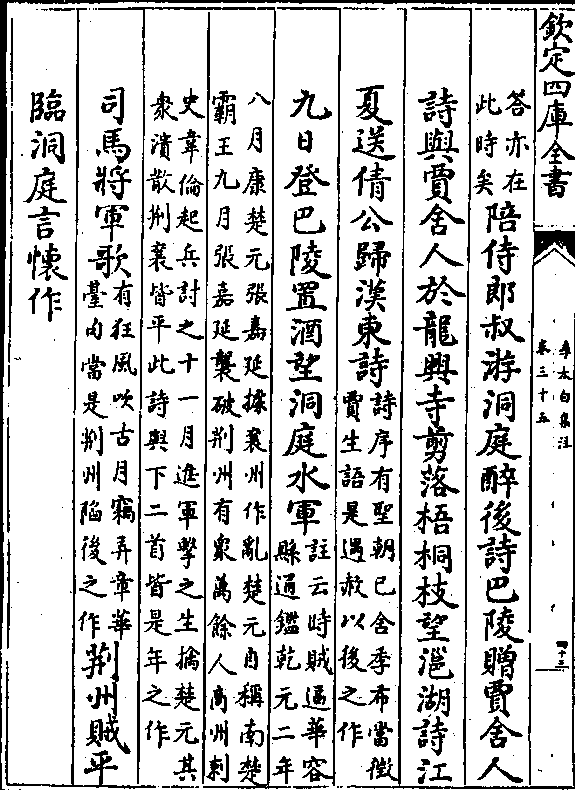 欽定四庫全書
李太白集注
卷三十五
四十三
答亦在
此時矣
陪侍郎叔游洞庭醉後詩巴陵贈賈舍人
詩與賈舍人於龍興寺剪落梧桐枝望㴩湖詩江
夏送倩公歸漢東詩
詩序有聖朝已舍季布當徵
賈生語是遇赦以後之作
九日登巴陵置酒望洞庭水軍
註云時賊逼華容
縣通鑑乾元二年
八月康楚元張嘉延據襄州作亂楚元自稱南楚
霸王九月張嘉延襲破荆州有衆萬餘人商州刺
史韋倫起兵討之十一月進軍擊之生擒楚元其
衆潰散荆襄皆平此詩與下二首皆是年之作
司馬將軍歌
有狂風吹古月竊弄章華
臺句當是荆州陷後之作
荆州賊平
臨洞庭言懷作